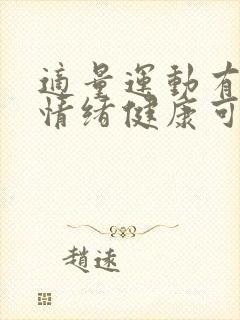 適量運動有
情绪健康可
趙遠